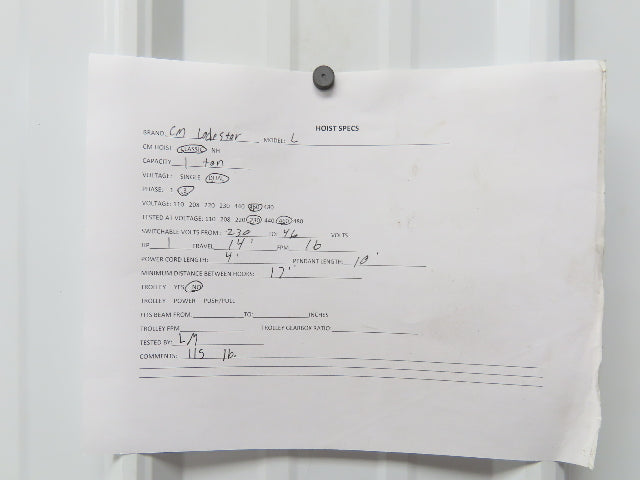 HOIST SPECS
BRAND: CM Lodestar MODEL: L
CM HOIST CLASSIC NH
CAPACITY 1 ton
VOLTAGE: SINGLE DUAL
PHASE: 1 3
VOLTAGE: 110 208 220 230 440 460 480
TESTED AT VOLTAGE: 110 208 220 230 440 460 480
SWITCHABLE VOLTS FROM: 230 TO: 46 VOLTS
HP 1 TRAVEL 14' FPM 16
POWER CORD LENGTH: 4' PENDANT LENGTH: 10'
MINIMUM DISTANCE BETWEEN HOOKS: 17"
TROLLEY YES NO
TROLLEY POWER PUSH/PULL
FITS BEAM FROM: TO: INCHES
TROLLEY FPM TROLLEY GEARBOX RATIO:
TESTED BY: LM
COMMENTS: 115 lb.